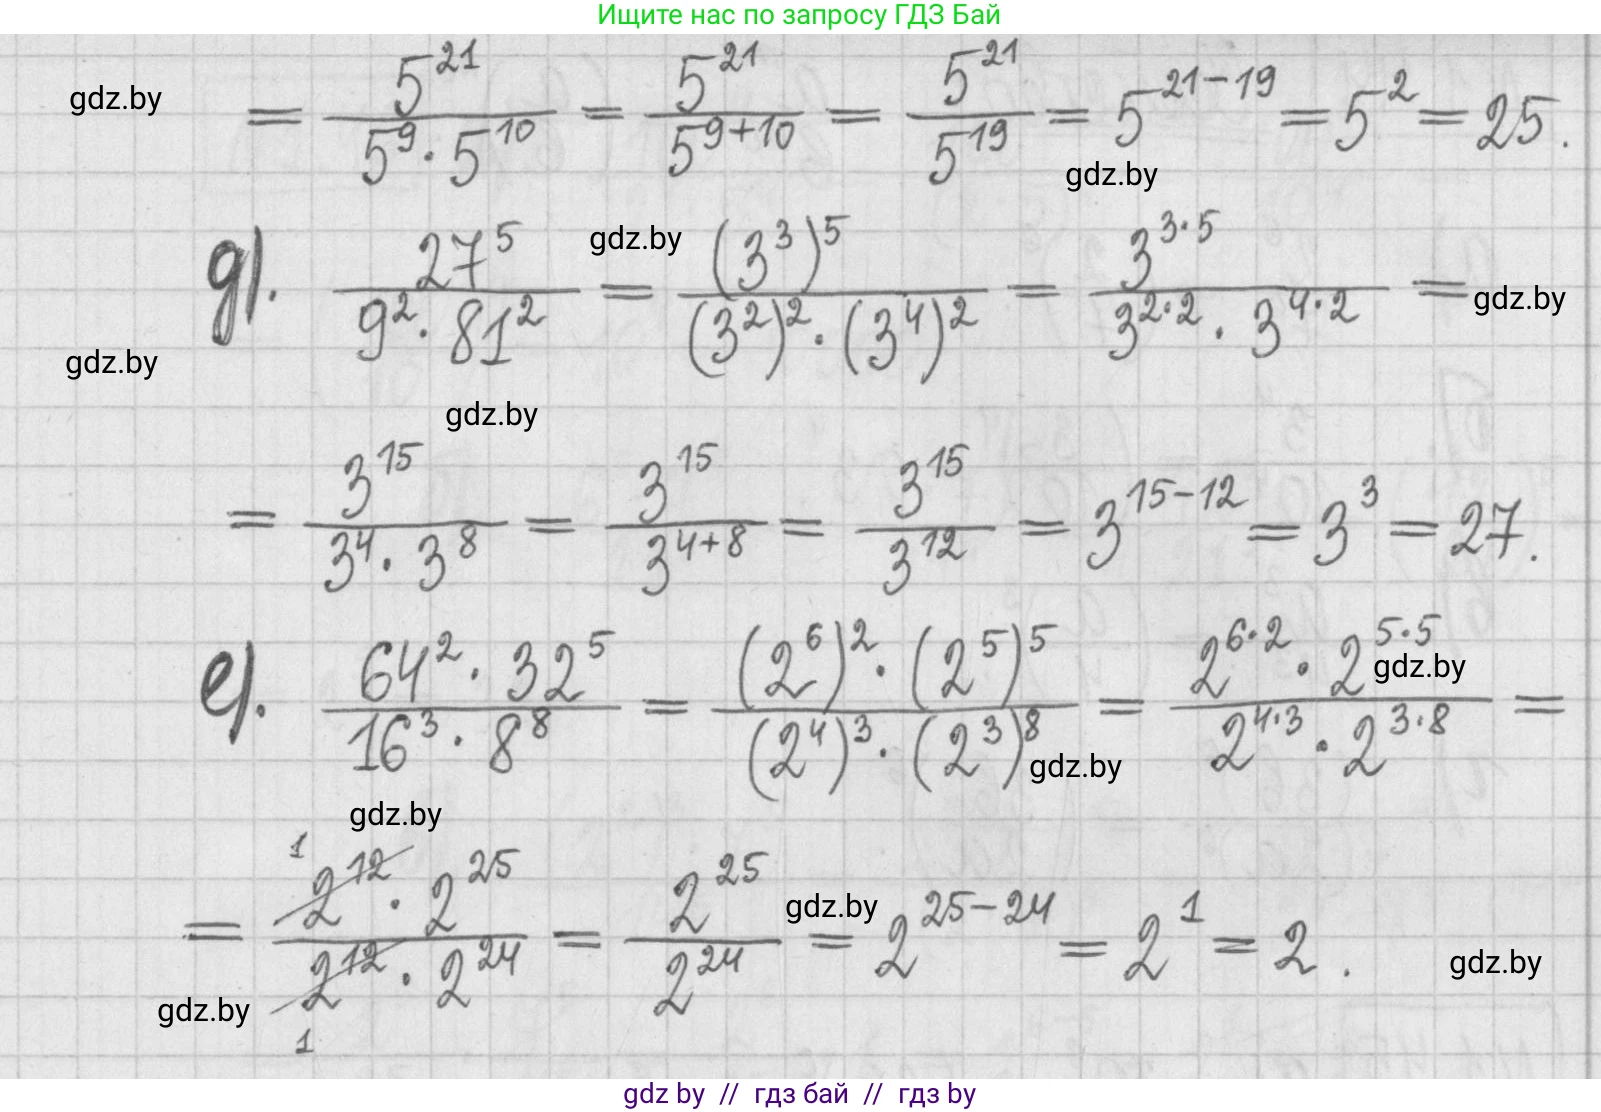 Ищите нас по запросу ГДЗ Бай
gdz.by
= 5^21 / (5^9 · 5^10) = 5^21 / 5^(9+10) = 5^21 / 5^19 = 5^(21-19) = 5^2 = 25.
gdz.by
gdz.by
д). 27^5 / (9^2 · 81^2) = (3^3)^5 / ((3^2)^2 · (3^4)^2) = 3^(3·5) / (3^(2·2) · 3^(4·2)) =
gdz.by
gdz.by
gdz.by
= 3^15 / (3^4 · 3^8) = 3^15 / 3^(4+8) = 3^15 / 3^12 = 3^(15-12) = 3^3 = 27.
е). (64^2 · 32^5) / (16^3 · 8^8) = ((2^6)^2 · (2^5)^5) / ((2^4)^3 · (2^3)^8) = (2^(6·2) · 2^(5·5)) / (2^(4·3) · 2^(3·8)) =
gdz.by
gdz.by
gdz.by
1
= (2^12 · 2^25) / (2^12 · 2^24) = 2^25 / 2^24 = 2^(25-24) = 2^1 = 2.
1
gdz.by
gdz.by
gdz.by
gdz by // гдз бай // гдз by